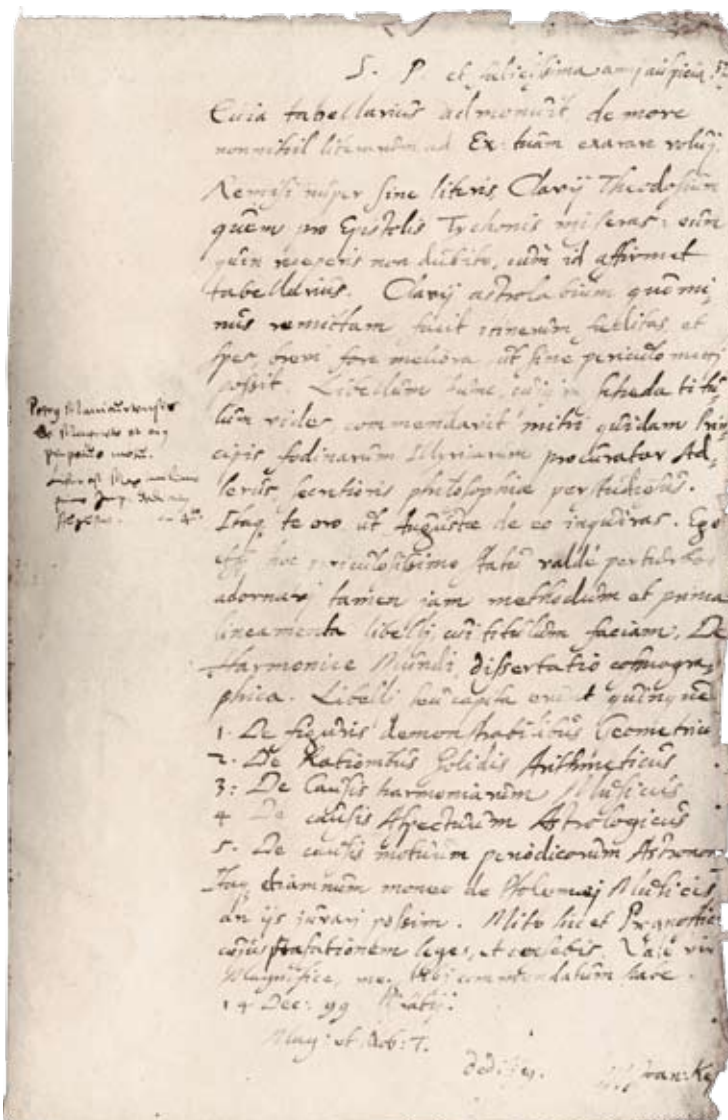 S. P. et felicissima anni auspicia
Quia tabellarius admonuit de more
nonnihil literarum ad Ex: tuam exarare volui.
Remisi nuper sine literis, Clavij Theodosium
quem pro Epistolis Tychonis miseras: eum
quin receperis non dubito, cum id affirmet
tabellarius. Clavij astrolabium quo mi,
nus remittam facit itinerum et
spes brevi fore meliora, ut sine periculo mitti
possit. Libellum hunc, cujus in scheda titu,
lum vides commendavit mihi quidam Prin,
cipis fodinarum Illyriarum procurator Ad,
lerus, secretioris philosophiæ perstudiosus.
Itaq te oro ut Augustæ de eo inquiras. Ego
etsi hoc periculosissimo statu valdè perturbor
adornavj tamen jam methodum et prima
lineamenta libellj, cui titulum faciam, De
Harmonice Mundi, dissertatio cosmogra,
phica. Libelli seu capita erunt quinque
1. De figuris demonstrabilibus Geometricus
2. De Rationibus Solidis Arithmeticus
3: De Causis harmoniarum Musicus
4 De causis Aspectuum Astrologicus
5. De causis motuum periodicorum Astronom
Itaq etiamnum moneo de Ptolemæj Musicis
an ijs juvari possim. Mitto hic et Prognostic
cujus Præfationem leges, et censebis. Vale vir
Magnifice, me tibj commendatum habe.
14 Dec: 99 Grætij.
Mag: et Nob: T.
deditiss.
Petrj
de et ejus
perpetuo motu.